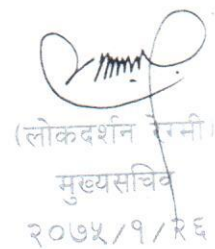 (लोकदर्शन रेग्मी)
मुख्यसचिव
२०७५/१/२६